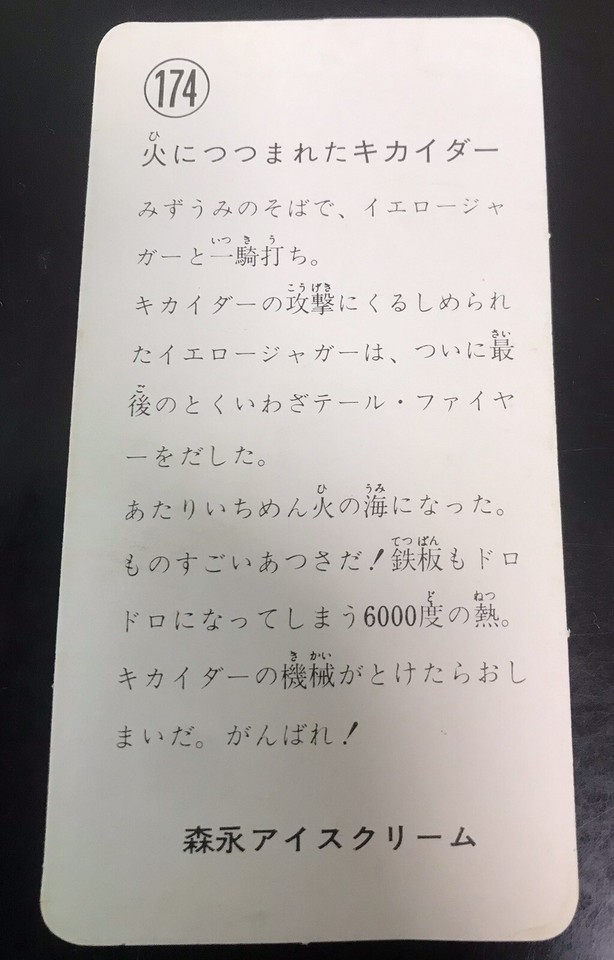 174
火につつまれたキカイダー
みずうみのそばで、イエロージャ
ガーと一騎打ち。
キカイダーの攻撃にくるしめられ
たイエロージャガーは、ついに最
後のとくいわざテール・ファイヤ
ーをだした。
あたりいちめん火の海になった。
ものすごいあつさだ！鉄板もドロ
ドロになってしまう6000度の熱。
キカイダーの機械がとけたらおし
まいだ。がんばれ！
森永アイスクリーム